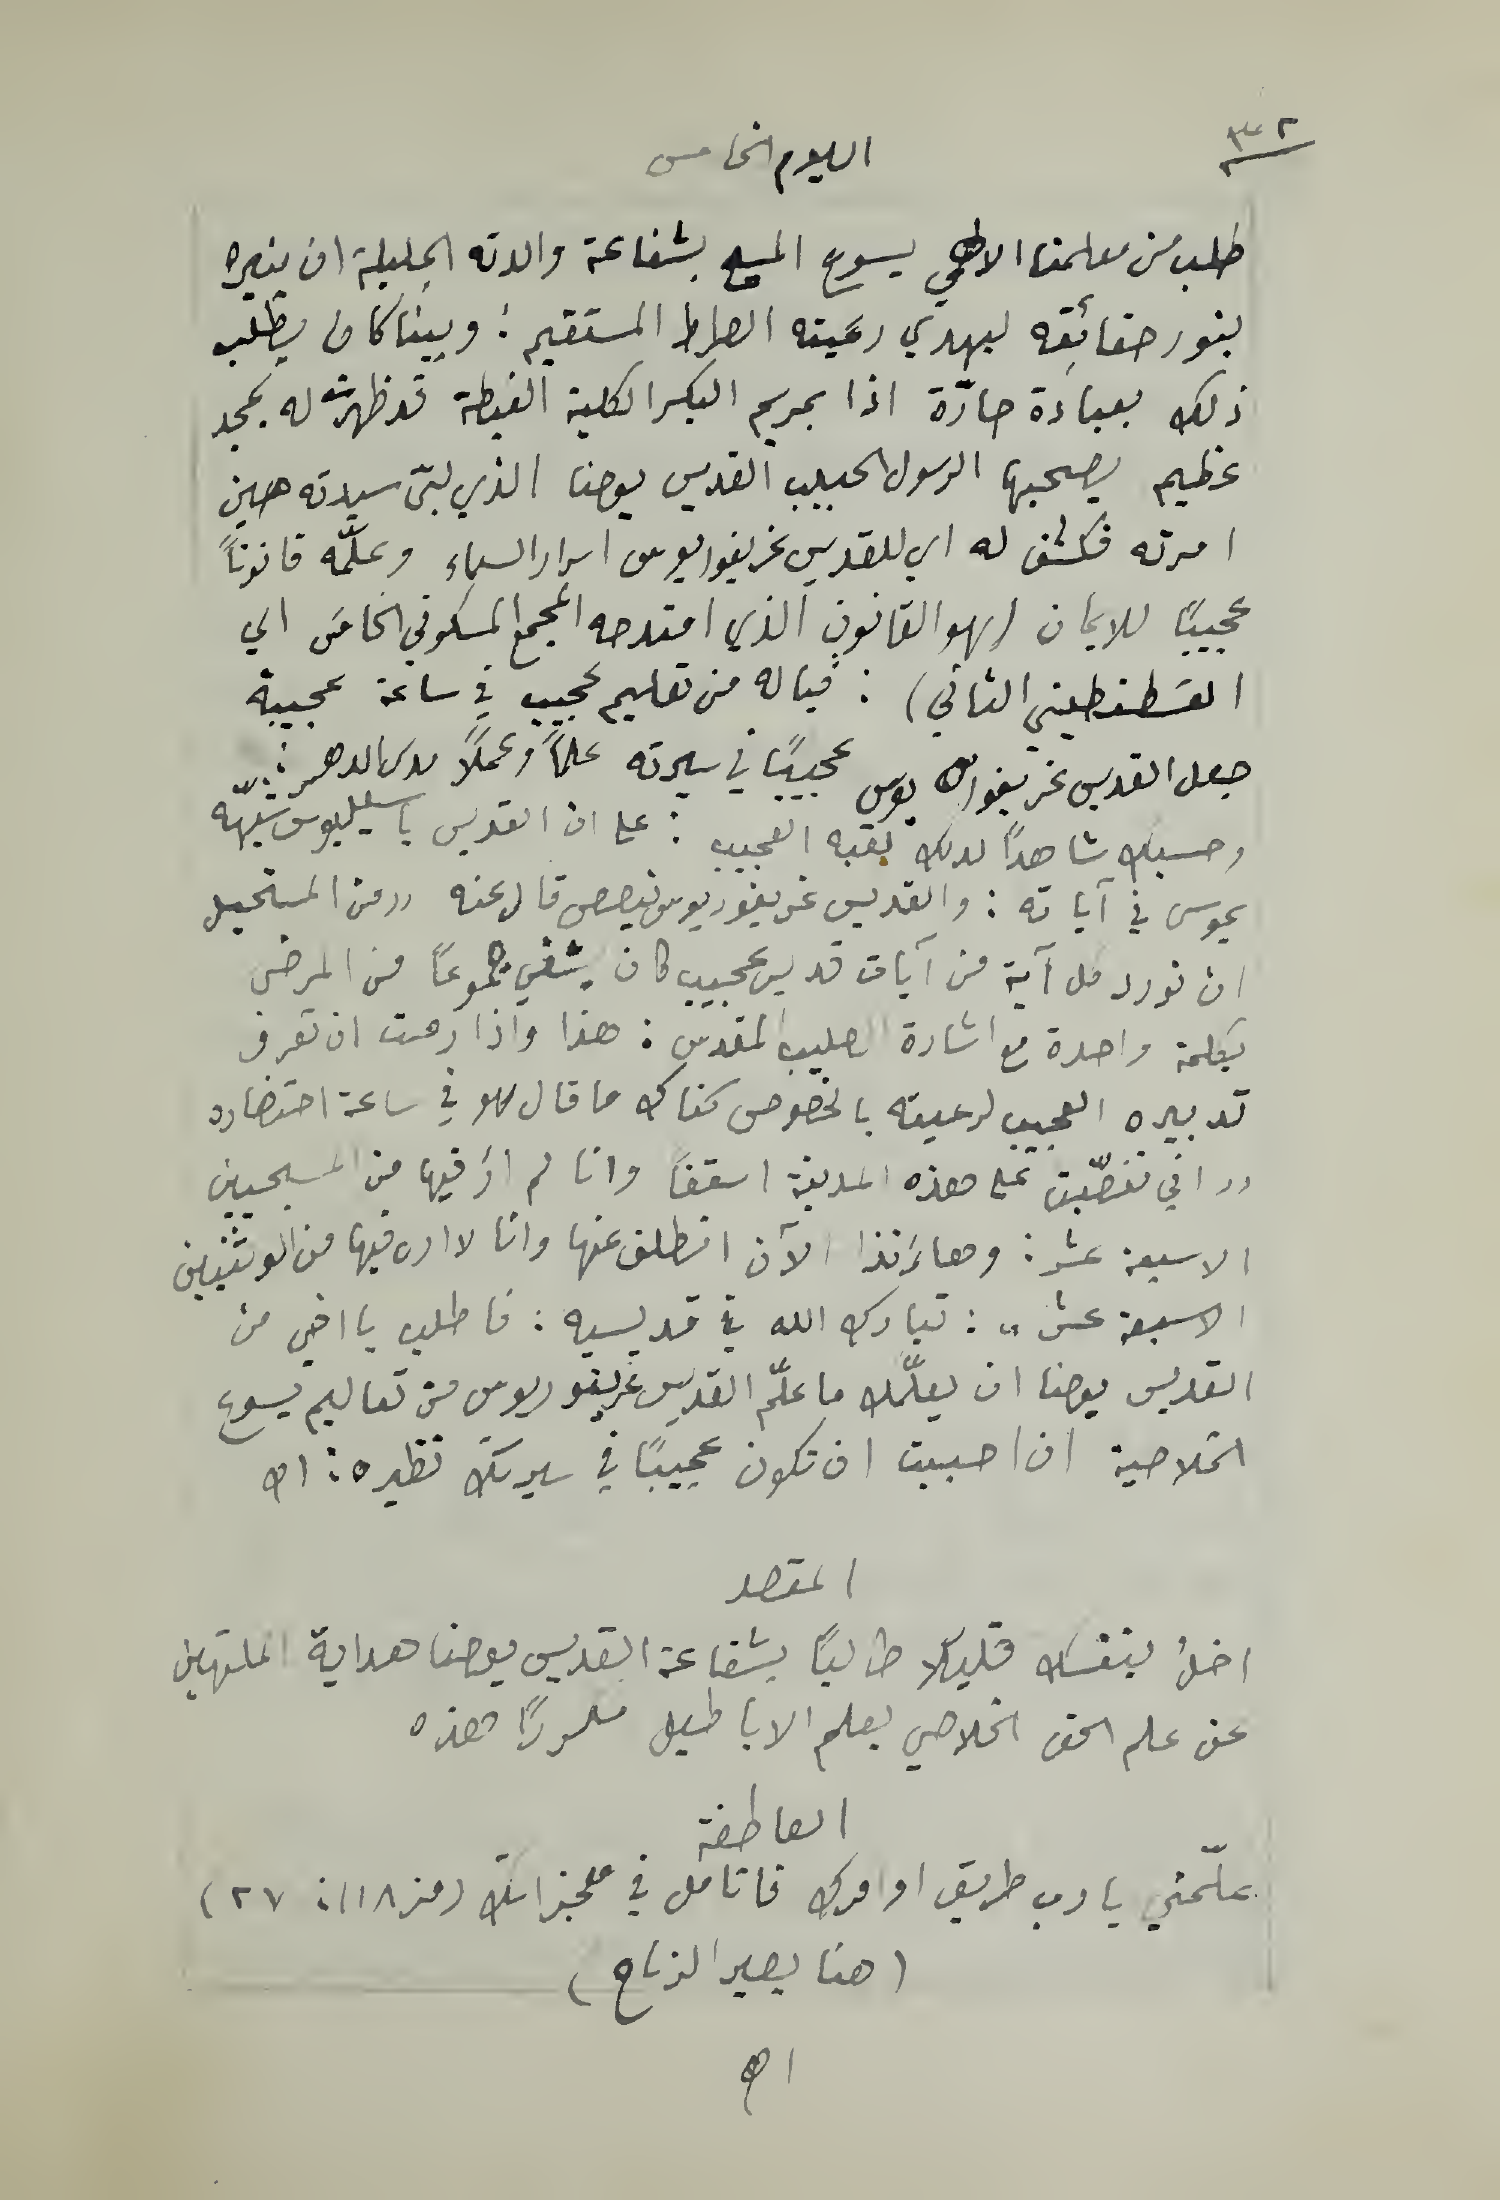 ٣٢
اليوم الخامس
طلب من معلمنا الالهي يسوع المسيح بشفاعة والدته الجليلة ان ينيره
بنور حقائقه ليهدي رعيته الصراط المستقيم : وبينا كان يطلب
ذلك بعبادة حارّة اذا بمريم البكر الكلية الغبطة قد ظهرت له بمجد
عظيم يصحبها الرسول الحبيب القديس يوحنا الذي لبّى سيدته حين
امرته فكشف له اي للقديس غريغوريوس اسرار السماء وعلّمه قانوناً
عجيبًا للايمان (وهو القانون الذي امتدحه المجمع المسكوني الخامس اي
القسطنطيني الثاني) : فيا له من تعليم عجيب في ساعة عجيبة
جعل القديس غريغوريوس عجيبًا في سيرته علمًا وعملًا مدى الدهر :
وحسبك شاهدًا لذلك لقبه العجيب : على ان القديس باسيليوس شبّهه
بموسى في آياته : والقديس غريغوريوس نيصص قال عنه «من المستحيل
ان نورد كل آية من آيات قديس عجيب كان يشفي جموعًا من المرضى
بكلمة واحدة مع اشارة الصليب المقدس : هذا واذا رمت ان تعرف
تدبيره العجيب لرعيته بالخصوص كفاك ما قال هو في ساعة احتضاره
«اني تنصّبت على هذه المدينة اسقفًا وانا لم ارَ فيها من المسيحيين
الا سبعة عشر : وهاءنذا الآن انطلق عنها وانا لا ارى فيها من الوثنيين
الا سبعة عشر» : تبارك الله في قديسيه : فاطلب يا اخي من
القديس يوحنا ان يعلّمك ما علّم القديس غريغوريوس من تعاليم يسوع
الخلاصية ان احببت ان تكون عجيبًا في سيرتك نظيره : اه
المقصد
اخلُ بنفسك قليلًا طالبًا بشفاعة القديس يوحنا هداية الملتهين
عن علم الحق الخلاصي بعلم الاباطيل مكررًا هذه
العاطفة
علّمني يا رب طريق اوامرك فاتامل في معجزاتك (مز ١١٨ : ٢٧)
(هنا يصير الزياح)
اه